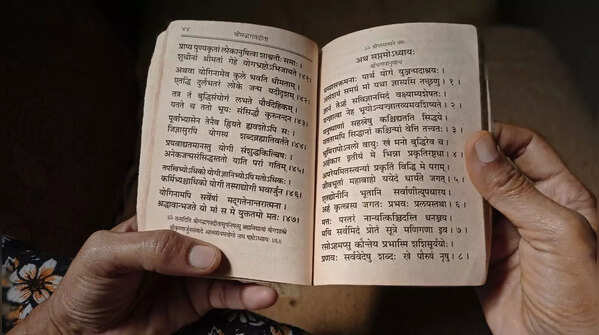 ४४ श्रीमद्भगवद्गीता
प्राप्य पुण्यकृतां लोकानुषित्वा शाश्वतीः समाः ।
शुचीनां श्रीमतां गेहे योगभ्रष्टोऽभिजायते ।४१।
अथवा योगिनामेव कुले भवति धीमताम् ।
एतद्धि दुर्लभतरं लोके जन्म यदीदृशम् ।४२।
तत्र तं बुद्धिसंयोगं लभते पौर्वदेहिकम् ।
यतते च ततो भूयः संसिद्धौ कुरुनन्दन ।४३।
पूर्वाभ्यासेन तेनैव ह्रियते ह्यवशोऽपि सः ।
जिज्ञासुरपि योगस्य शब्दब्रह्मातिवर्तते ।४४।
प्रयत्नाद्यतमानस्तु योगी संशुद्धकिल्बिषः ।
अनेकजन्मसंसिद्धस्ततो याति परां गतिम् ।४५।
तपस्विभ्योऽधिको योगी ज्ञानिभ्योऽपि मतोऽधिकः ।
कर्मिभ्यश्चाधिको योगी तस्माद्योगी भवार्जुन ।४६।
योगिनामपि सर्वेषां मद्गतेनान्तरात्मना ।
श्रद्धावान्भजते यो मां स मे युक्ततमो मतः ।४७।
ॐ तत्सदिति श्रीमद्भगवद्गीतासूपनिषत्सु ब्रह्मविद्यायां योगशास्त्रे
अथ सप्तमोऽध्यायः
श्रीभगवानुवाच
मय्यासक्तमनाः पार्थ योगं युञ्जन्मदाश्रयः ।
असंशयं समग्रं मां यथा ज्ञास्यसि तच्छृणु ।१।
ज्ञानं तेऽहं सविज्ञानमिदं वक्ष्याम्यशेषतः ।
यज्ज्ञात्वा नेह भूयोऽन्यज्ज्ञातव्यमवशिष्यते ।२।
मनुष्याणां सहस्रेषु कश्चिद्यतति सिद्धये ।
यततामपि सिद्धानां कश्चिन्मां वेत्ति तत्त्वतः ।३।
भूमिरापोऽनलो वायुः खं मनो बुद्धिरेव च ।
अहंकार इतीयं मे भिन्ना प्रकृतिरष्टधा ।४।
अपरेयमितस्त्वन्यां प्रकृतिं विद्धि मे पराम् ।
जीवभूतां महाबाहो ययेदं धार्यते जगत् ।५।
एतद्योनीनि भूतानि सर्वाणीत्युपधारय ।
अहं कृत्स्नस्य जगतः प्रभवः प्रलयस्तथा ।६।
मत्तः परतरं नान्यत्किञ्चिदस्ति धनञ्जय ।
मयि सर्वमिदं प्रोतं सूत्रे मणिगणा इव ।७।
रसोऽहमप्सु कौन्तेय प्रभास्मि शशिसूर्ययोः ।
प्रणवः सर्ववेदेषु शब्दः खे पौरुषं नृषु ।८।